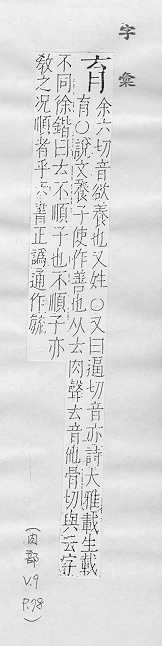 字彙
育 余六切音欲養也又姓〇又曰逼切音亦詩大雅載生載
育〇說文養子使作善也从𠫓肉聲𠫓音他骨切與云字
不同徐鍇曰𠫓不順子也不順子亦
教之况順者乎 正譌通作毓
(肉部
V.9
P.78)